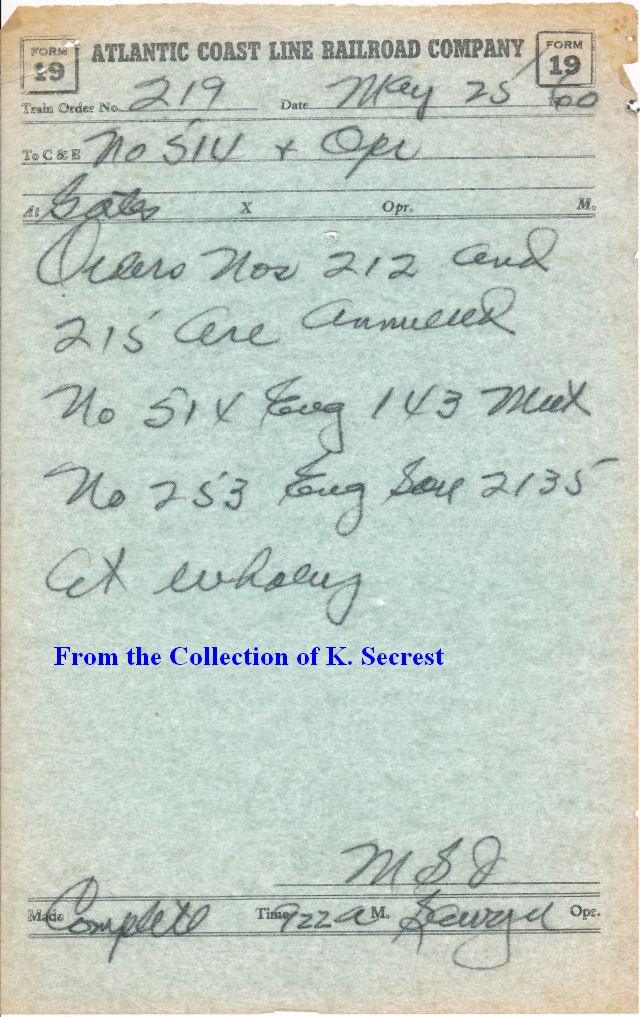 FORM 19 ATLANTIC COAST LINE RAILROAD COMPANY FORM 19
Train Order No. 219 Date May 25 1960
To C & E No 514 + Opr
At Gates X Opr. M.
Orders Nos 212 and
215 are annulled
No 514 Eng 143 Meet
No 253 Eng Sou 2135
At Whaley
From the Collection of K. Secrest
M S J
Made Complete Time 922 A M. Opr.